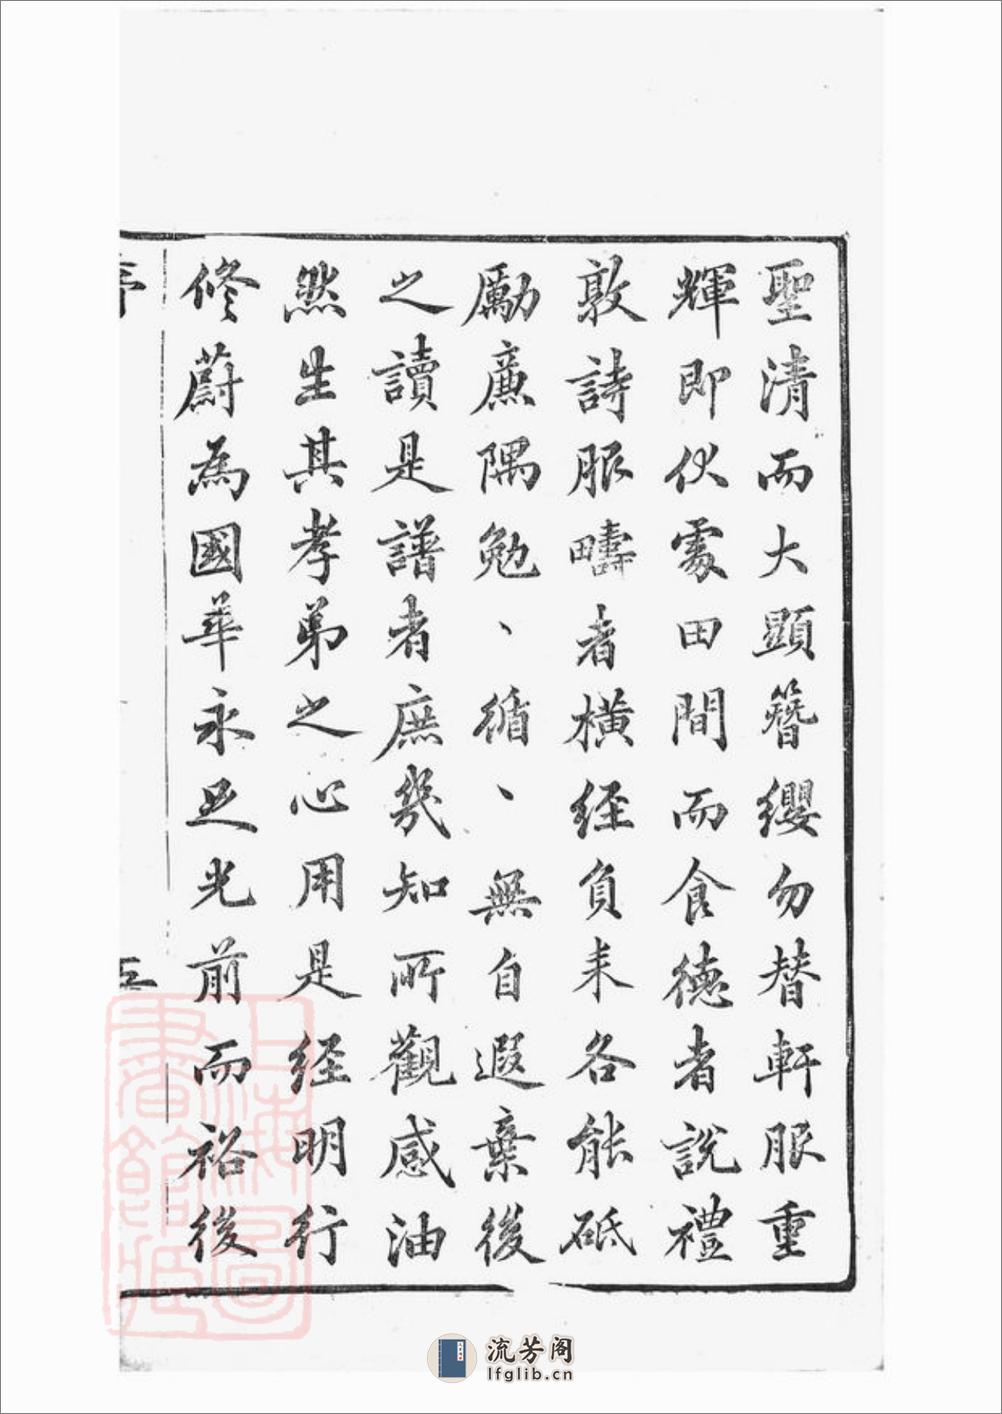 聖清而大顯簪纓勿替軒服重
輝即伙處田間而食德者說禮
敦詩服疇者橫经負耒各能砥
勵廉隅勉、循、無自遐棄後
之讀是譜者庶幾知所觀感油
然生其孝弟之心用是经明行
修蔚為國華永足光前而裕後
序
五
上海圖書館藏
流芳阁
lfglib.cn